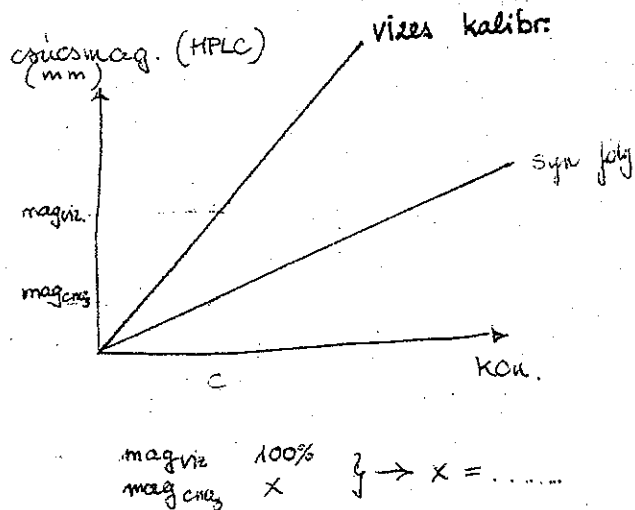 csúcsmag. (HPLC)
(mm)
vizes kalibr:
syn foly
mag viz.
mag
C
kon.
mag viz 100% } → x = .......
mag x